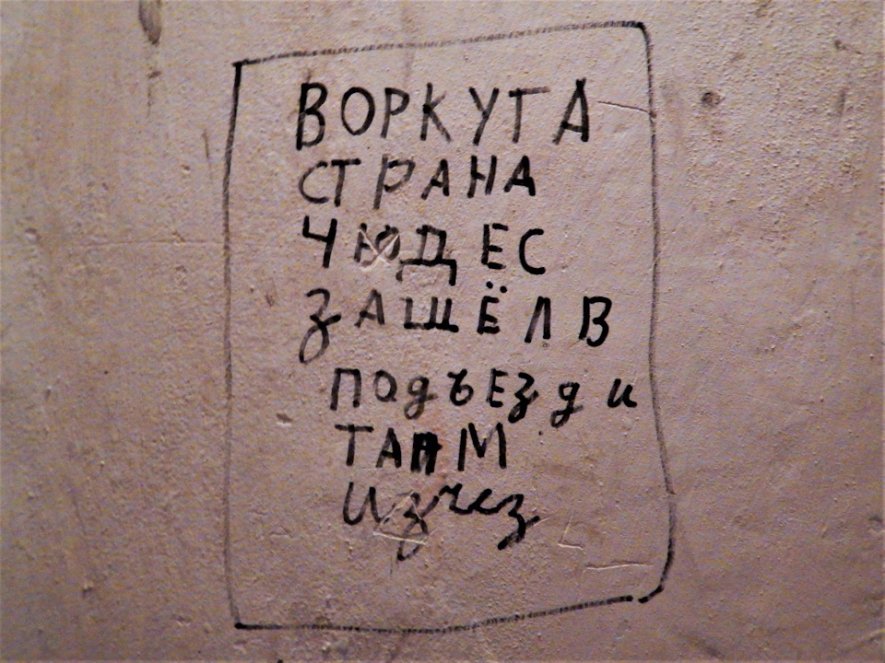 ВОРКУТА
СТРАНА
ЧЮДЕС
ЗАШЁЛ В
ПОДЪЕЗД И
ТАМ
ИЗЧЕЗ